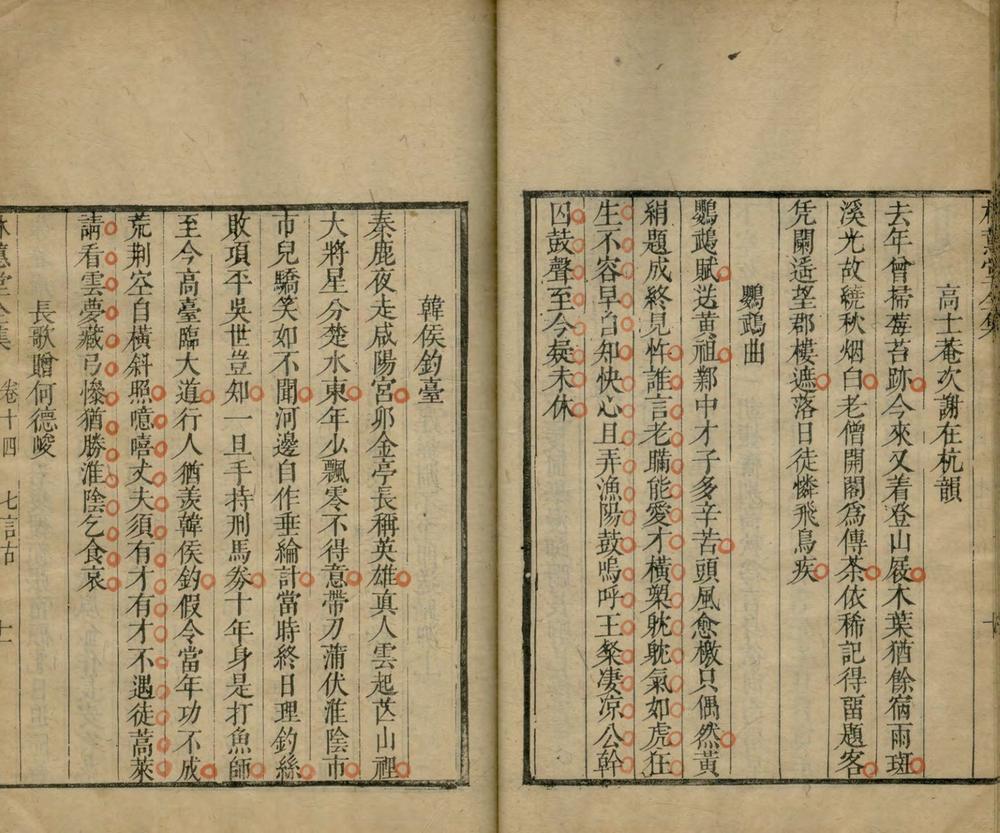 林蕙堂全集
高士菴次謝在杭韻
去年曾掃莓苔跡今來又着登山屐木葉猶餘宿雨斑
溪光故繞秋烟白老僧開閣爲傳茶依稀記得畱題客
凭闌遥望郡樓遮落日徒憐飛鳥疾
鸚鵡曲
鸚鵡賦送黃祖鄴中才子多辛苦頭風愈檄只偶然黃
絹題成終見忤誰言老瞞能愛才橫槊眈眈氣如虎狂
生不容早自知快心且弄漁陽鼓嗚呼王粲淒凉公幹
囚鼓聲至今疑未休
韓侯釣臺
秦鹿夜走咸陽宮卯金亭長稱英雄真人雲起芒山裡
大將星分楚水東年少飄零不得意帶刀蒲伏淮陰市
市兒驕笑如不聞河邊自作垂綸計當時終日理釣絲
敗項平吳世豈知一旦手持刑馬券十年身是打魚師
至今高臺臨大道行人猶羨韓侯釣假令當年功不成
荒荆空自橫斜照噫嘻丈夫須有才有才不遇徒蒿萊
請看雲夢藏弓慘猶勝淮陰乞食哀
長歌贈何德峻
林蕙堂全集 卷十四 七言古 十一